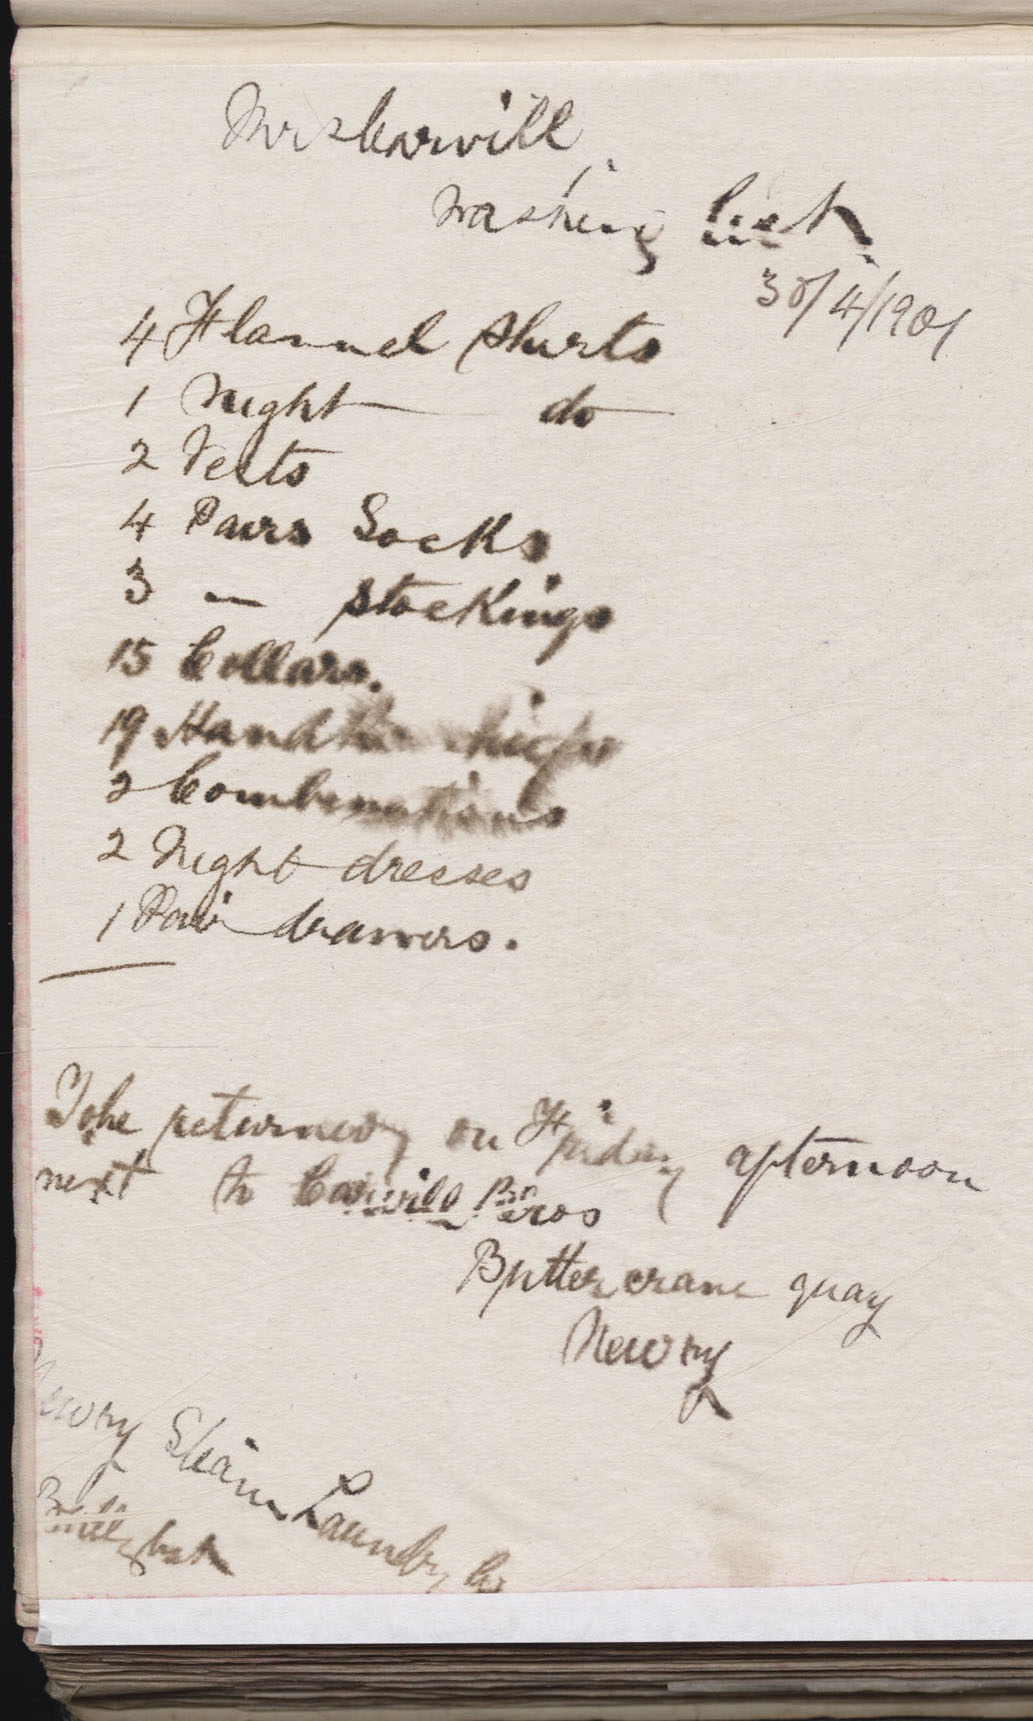 Mrs Carvill
Washing List
30/4/1901
4 Flannel Shirts
1 Night do
2 Vests
4 Pairs Socks
3 — Stockings
15 Collars.
19 Handkerchiefs
2 Combinations
2 Night dresses
1 Pair drawers.
To be returned on Friday afternoon
next to Carvill Bros
Buttercrane quay
Newry
Newry Steam Laundry Co